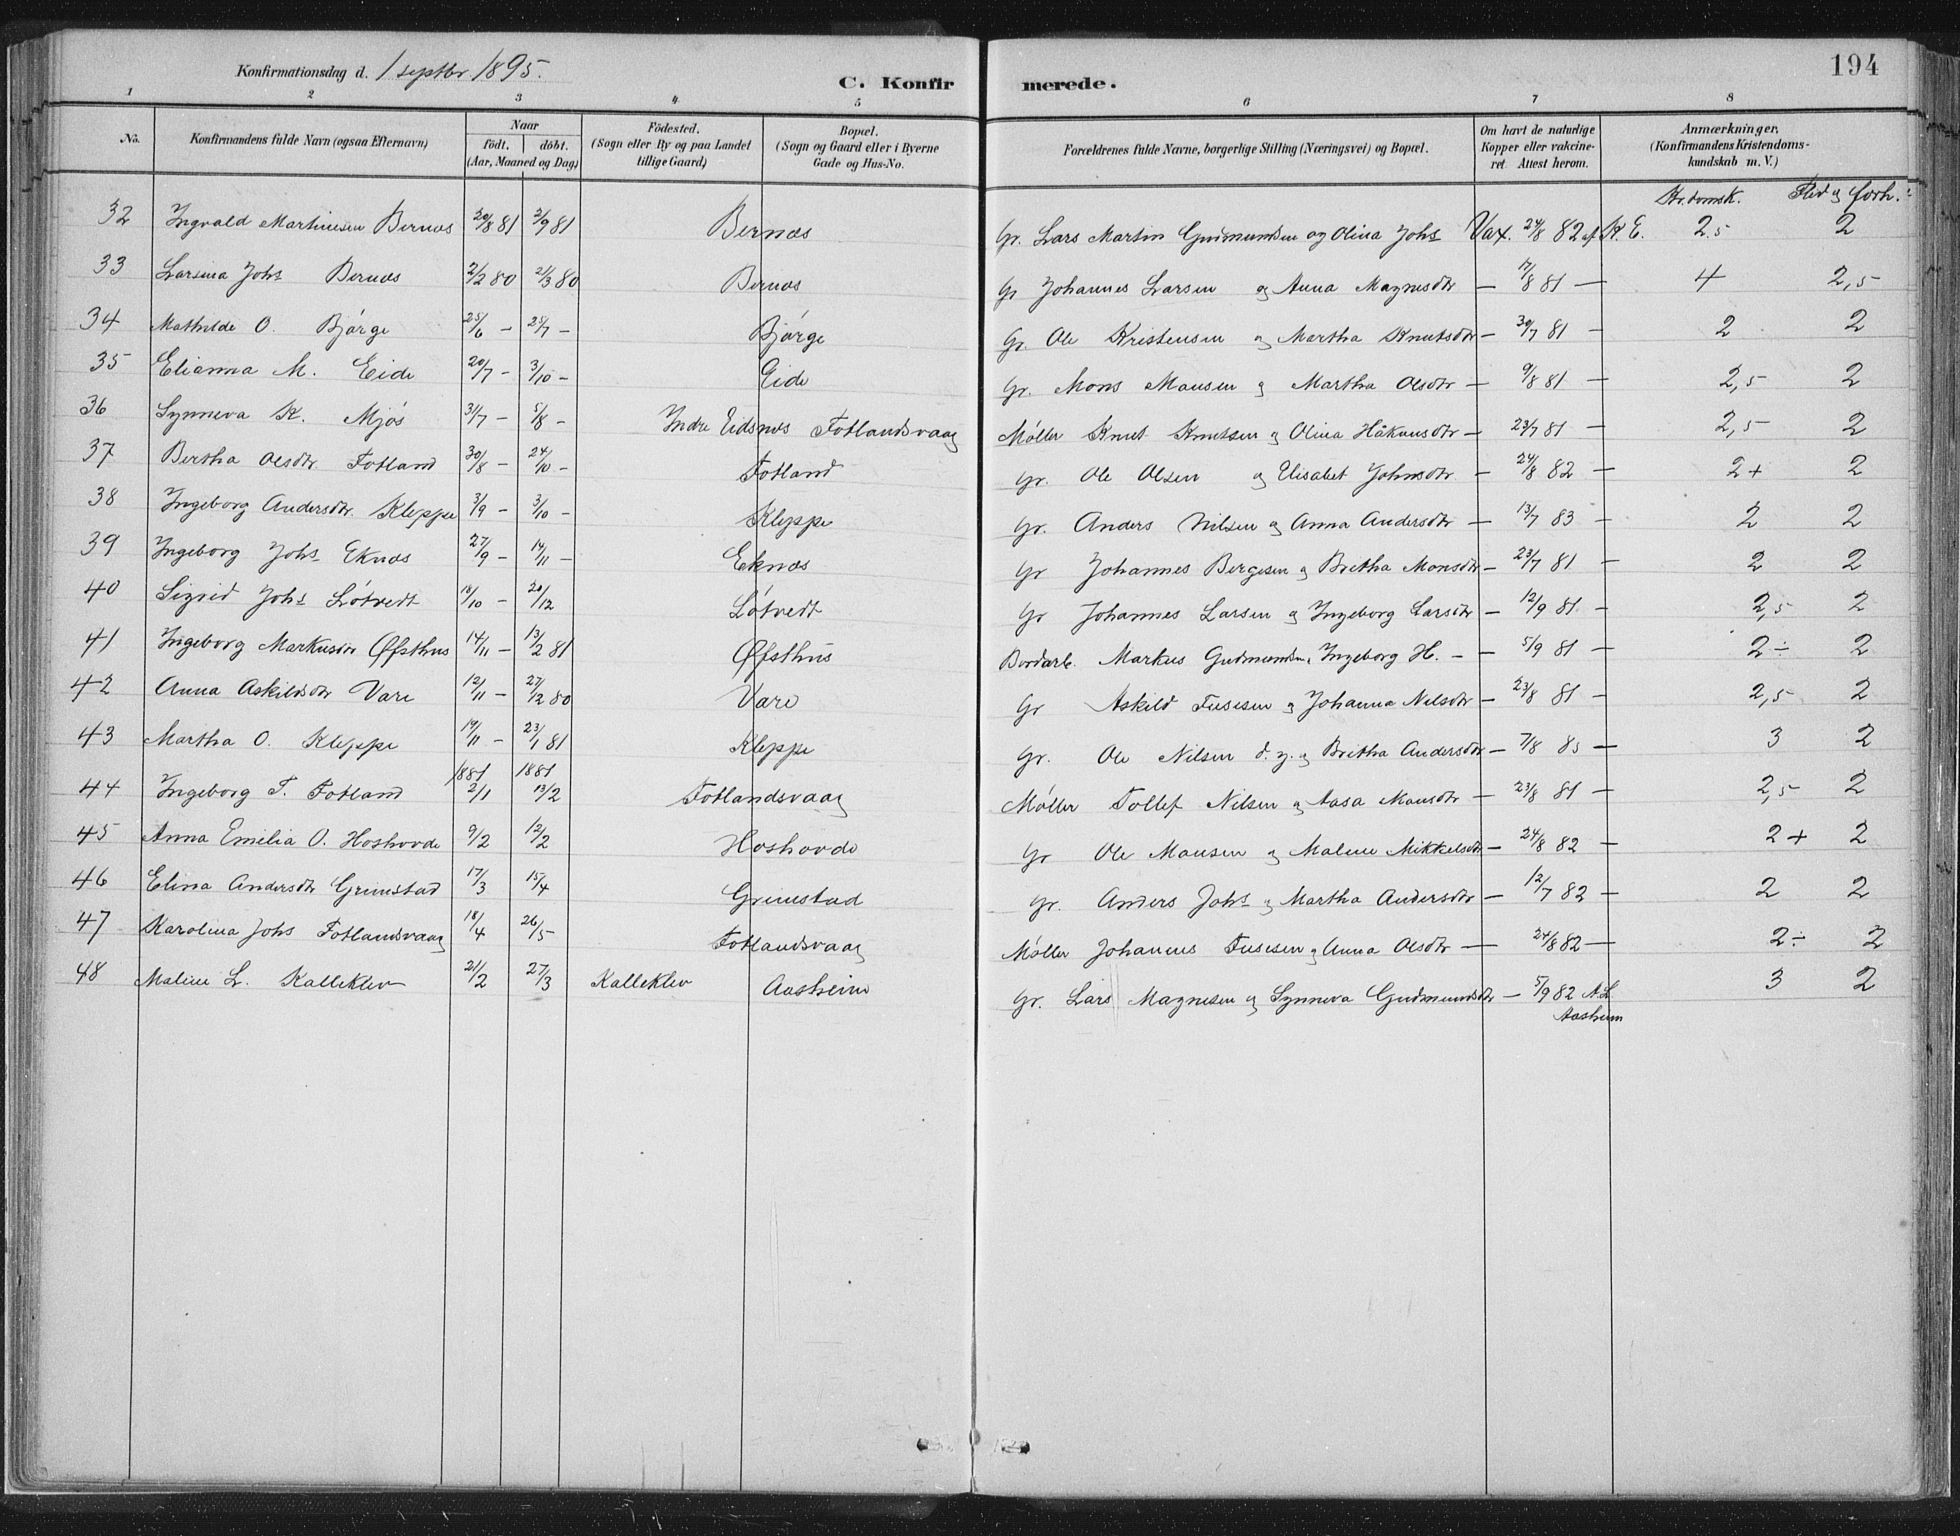 194
Konfirmationsdag d. 1 septbr 1895. C. Konfirmerede.
1 2 3 4 5 6 7 8
No. Konfirmandens fulde Navn (ogsaa Efternavn) Naar födt. döbt. (Aar, Maaned og Dag) Födested. (Sogn eller By og paa Landet tillige Gaard) Bopæl. (Sogn og Gaard eller i Byerne Gade og Hus-No. Forældrenes fulde Navne, borgerlige Stilling (Næringsvei) og Bopæl. Om havt de naturlige Kopper eller vakcineret. Attest herom. Anmærkninger. (Konfirmandens Kristendomskundskab m. V.)
Kr.domsk. Flid og forh.
32 Ingvald Martinesen Bernæs 20/8 81 2/9 81 Bernæs Gr. Lars Martin Gudmundsen og Olina Johs Vax. 24/8 82 af K. E. 2.5 2
33 Larsina Johs Bernæs 2/2 80 2/3 80 Bernæs Gr Johannes Larsen og Anna Magnesdtr — 7/8 81 — 4 2,5
34 Mathilde O. Bjørge 25/6 — 25/7 — Bjørge Gr. Ole Kristensen og Martha Knutsdtr — 30/7 81 — 2 2
35 Elianna M. Eide 20/7 — 3/10 — Eide Gr. Mons Monsen og Martha Olsdtr — 9/8 81 — 2,5 2
36 Synneva K. Mjøs 31/7 — 5/8 — Indre Eidsnes Fotlandsvaag Møller Knut Knutsen og Olina Håkonsdtr — 23/7 81 — 2,5 2
37 Bertha Olsdtr. Fotland 30/8 — 24/10 — Fotland Gr. Ole Olsen og Elisabet Johnsdtr — 24/8 82 — 2+ 2
38 Ingeborg Andersdtr. Kleppe 3/9 — 3/10 — Kleppe Gr. Anders Nilsen og Anna Andersdtr — 13/7 83 — 2 2
39 Ingeborg Johs Eknæs 27/9 — 14/11 — Eknæs Gr Johannes Bergesen og Bretha Monsdtr — 23/7 81 — 2 2
40 Sigrid Johs Løtvedt 18/10 — 20/12 Løtvedt Gr Johannes Larsen og Ingeborg Larsdtr — 12/9 81 — 2,5 2
41 Ingeborg Markusdtr Øfsthus 14/11 — 13/2 81 Øfsthus Bordarb. Markus Gudmundsn, Ingeborg H. — — 5/9 81 — 2÷ 2
42 Anna Askildsdtr Vare 12/11 — 27/12 80 Vare Gr Askild Fusesen og Johanna Nilsdtr — 23/8 81 — 2,5 2
43 Martha O. Kleppe 19/11 — 23/1 81 Kleppe Gr. Ole Nilsen d.y. og Bretha Andersdtr — 7/8 83 — 3 2
1881 1881
44 Ingeborg T. Fotland 2/1 13/2 Fotlandsvaag Møller Tollef Nilsen og Aasa Monsdtr — 23/8 81 — 2,5 2
45 Anna Emilia O. Hoshovde 9/2 12/2 Hoshovde Gr Ole Monsen og Malene Mikkelsdtr — 24/8 82 — 2+ 2
46 Elina Andersdtr Grimstad 17/3 15/4 Grimstad Gr. Anders Johs og Martha Andersdtr — 12/7 82 — 2 2
47 Karolina Johs Fotlandsvaag 18/4 26/5 Fotlandsvaag Møller Johannes Fusesen og Anna Olsdtr — 24/8 82 — 2÷ 2
48 Maline L. Kalleklev 21/2 27/3 Kalleklev Aasheim Gr. Lars Magnesen og Synneva Gudmundsdtr — 5/9 82 A.L. 3 2
Aasheim